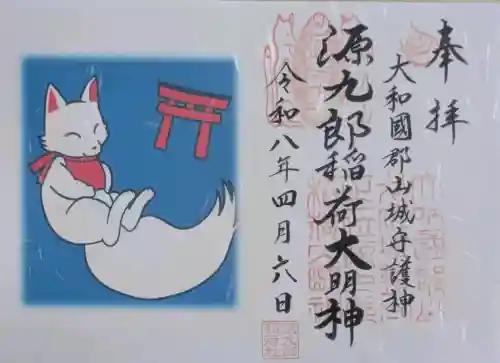 奉拝
大和國郡山城守護神
源九郎稲荷大明神
令和八年四月六日